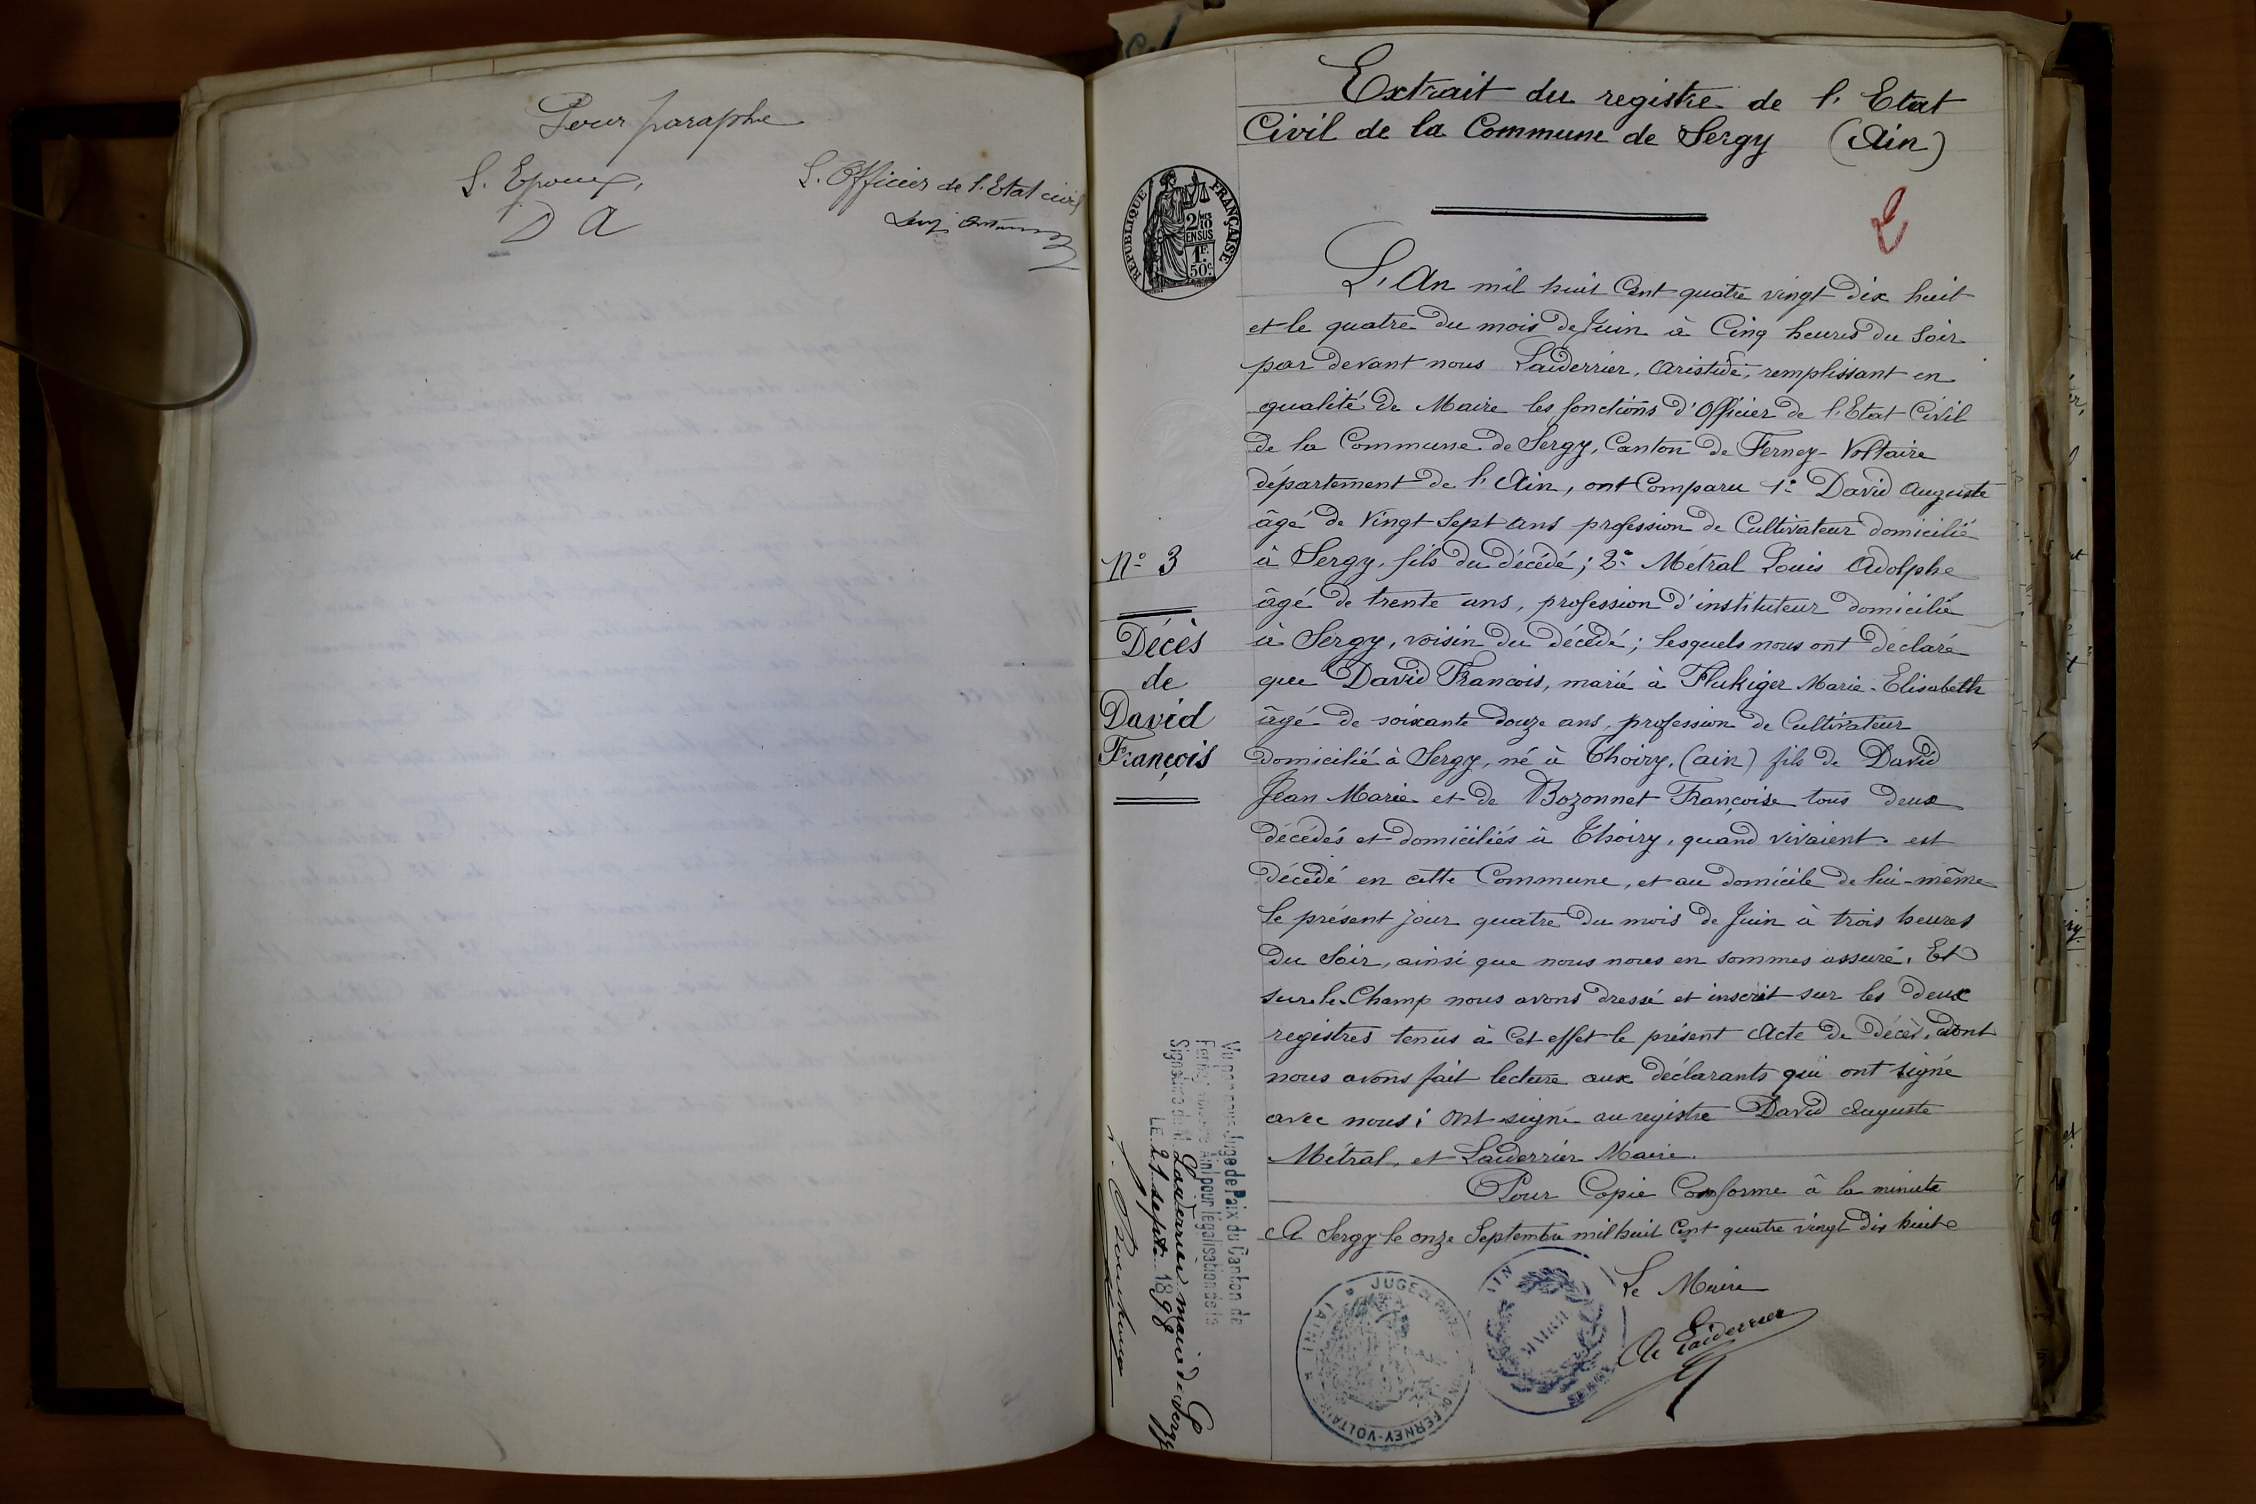 Pour paraphe
L. Epoux,
L. Officier de l. Etat civil
D A
Extrait du registre de l. Etat
Civil de la Commune de Sergy (Ain)
REPUBLIQUE FRANÇAISE
2/10
EN SUS
1F.
50c.
L. An mil huit Cent quatre vingt dix huit
et le quatre du mois de Juin à Cinq heures du Soir
par devant nous Laiderrier, Aristide, remplissant en
qualité de Maire les fonctions d'Officier de l'Etat Civil
de la Commune de Sergy, Canton de Ferney-Voltaire
département de l'Ain, ont Comparu 1° David Auguste
âgé de Vingt Sept ans profession de Cultivateur domicilié
N° 3
à Sergy, fils du décédé ; 2° Métral Louis Adolphe
âgé de trente ans, profession d'instituteur domicilié
Décès
à Sergy, voisin du décédé ; lesquels nous ont déclaré
de
que David Francois, marié à Flukiger Marie-Elisabeth
David
âgé de soixante douze ans, profession de Cultivateur
François
domicilié à Sergy, né à Thoiry, (ain) fils de David
Jean Marie et de Bozonnet Françoise tous deux
décédés et domiciliés à Thoiry, quand vivaient. est
décédé en cette Commune, et au domicile de lui-même
le présent jour quatre du mois de Juin à trois heures
du Soir, ainsi que nous nous en sommes assuré. Et
sur-le-Champ nous avons dressé et inscrit sur les deux
registres tenus à Cet effet le présent Acte de Décès, dont
nous avons fait lecture aux déclarants qui ont signé
avec nous ; Ont signé au registre David Auguste
Métral, et Laiderrier Maire.
Pour Copie Conforme à la minute
A Sergy le onze Septembre mil huit Cent quatre vingt dix huit
Le Maire
A Laiderrier
Vu par nous Juge de Paix du Canton de
Ferney-Voltaire (Ain) pour légalisation de la
Signature de M. Laiderrier maire de Sergy
LE 21 septe 1898
JUGE DE PAIX
CANTON DE FERNEY-VOLTAIRE
(AIN)
MAIRIE
SERGY
AIN